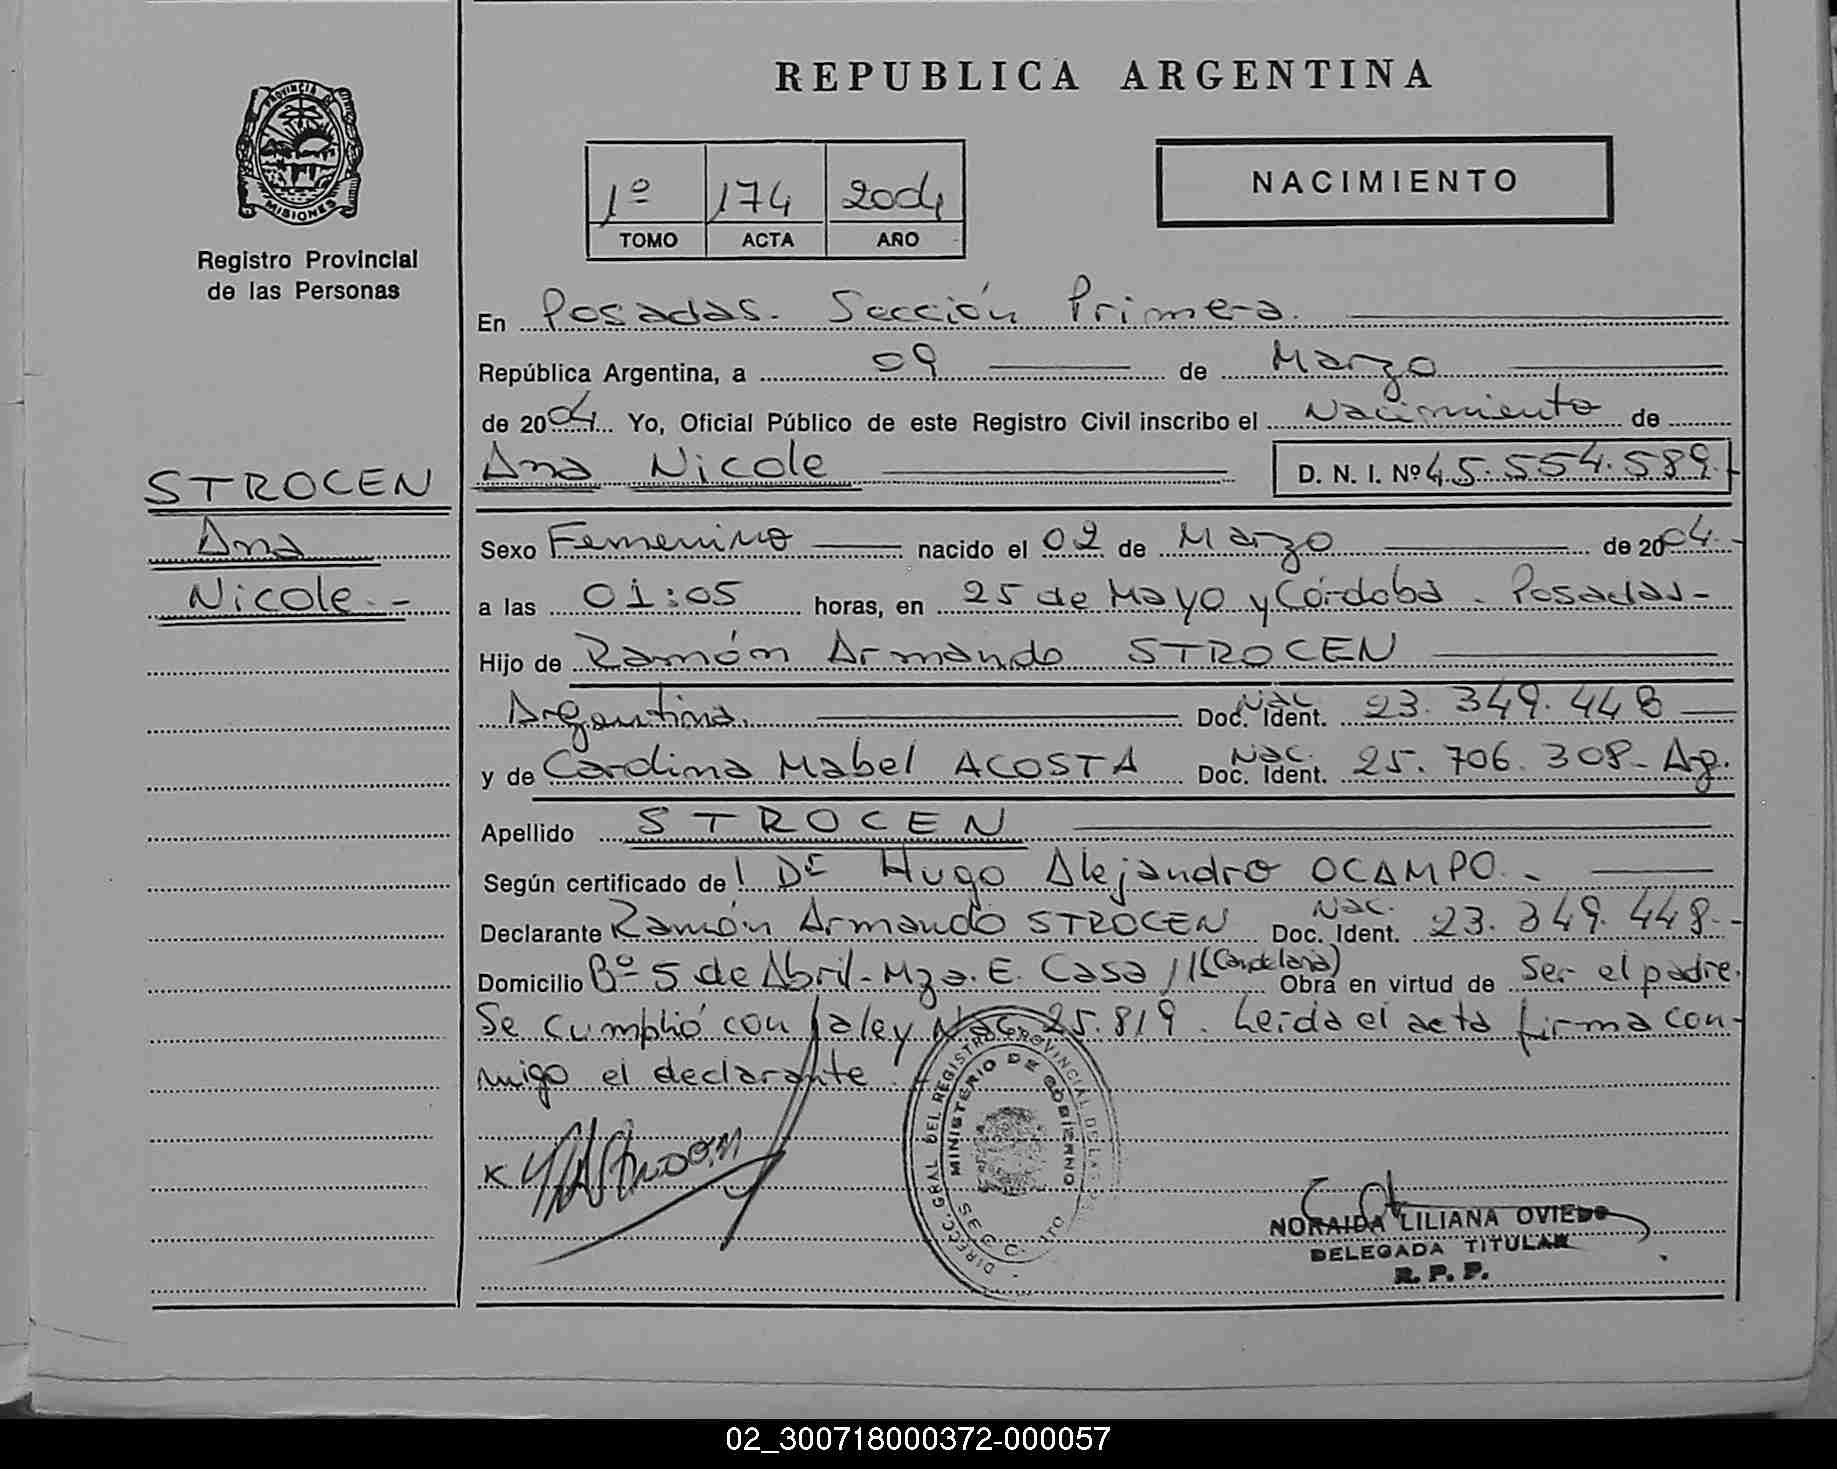 PROVINCIA DE
MISIONES
Registro Provincial
de las Personas
REPUBLICA ARGENTINA
1º 174 2004
TOMO ACTA AÑO
NACIMIENTO
En Posadas. Sección Primera.
República Argentina, a 09 de Marzo
de 2004 Yo, Oficial Público de este Registro Civil inscribo el Nacimiento de
STROCEN
Ana
Nicole.-
Ana Nicole D. N. I. Nº 45.554.589.-
Sexo Femenino nacido el 02 de Marzo de 2004.-
a las 01:05 horas, en 25 de Mayo y Córdoba. Posadas-
Hijo de Ramón Armando STROCEN
Argentina. Nac. Doc. Ident. 23.349.448
y de Carolina Mabel ACOSTA Nac. Doc. Ident. 25.706.308- Ag.
Apellido STROCEN
Según certificado de l Dr Hugo Alejandro OCAMPO.-
Declarante Ramón Armando STROCEN Nac. Doc. Ident. 23.349.448.-
Domicilio Bº 5 de Abril-Mza. E. Casa 11 (Candelaria) Obra en virtud de Ser el padre.
Se cumplió con la ley Nac. 25.819. Leída el acta firma con-
migo el declarante.
DIREC. GRAL DEL REGISTRO PROVINCIAL DE LAS
MINISTERIO DE GOBIERNO
NORAIDA LILIANA OVIEDO
DELEGADA TITULAR
R. P. P.
02_300718000372-000057